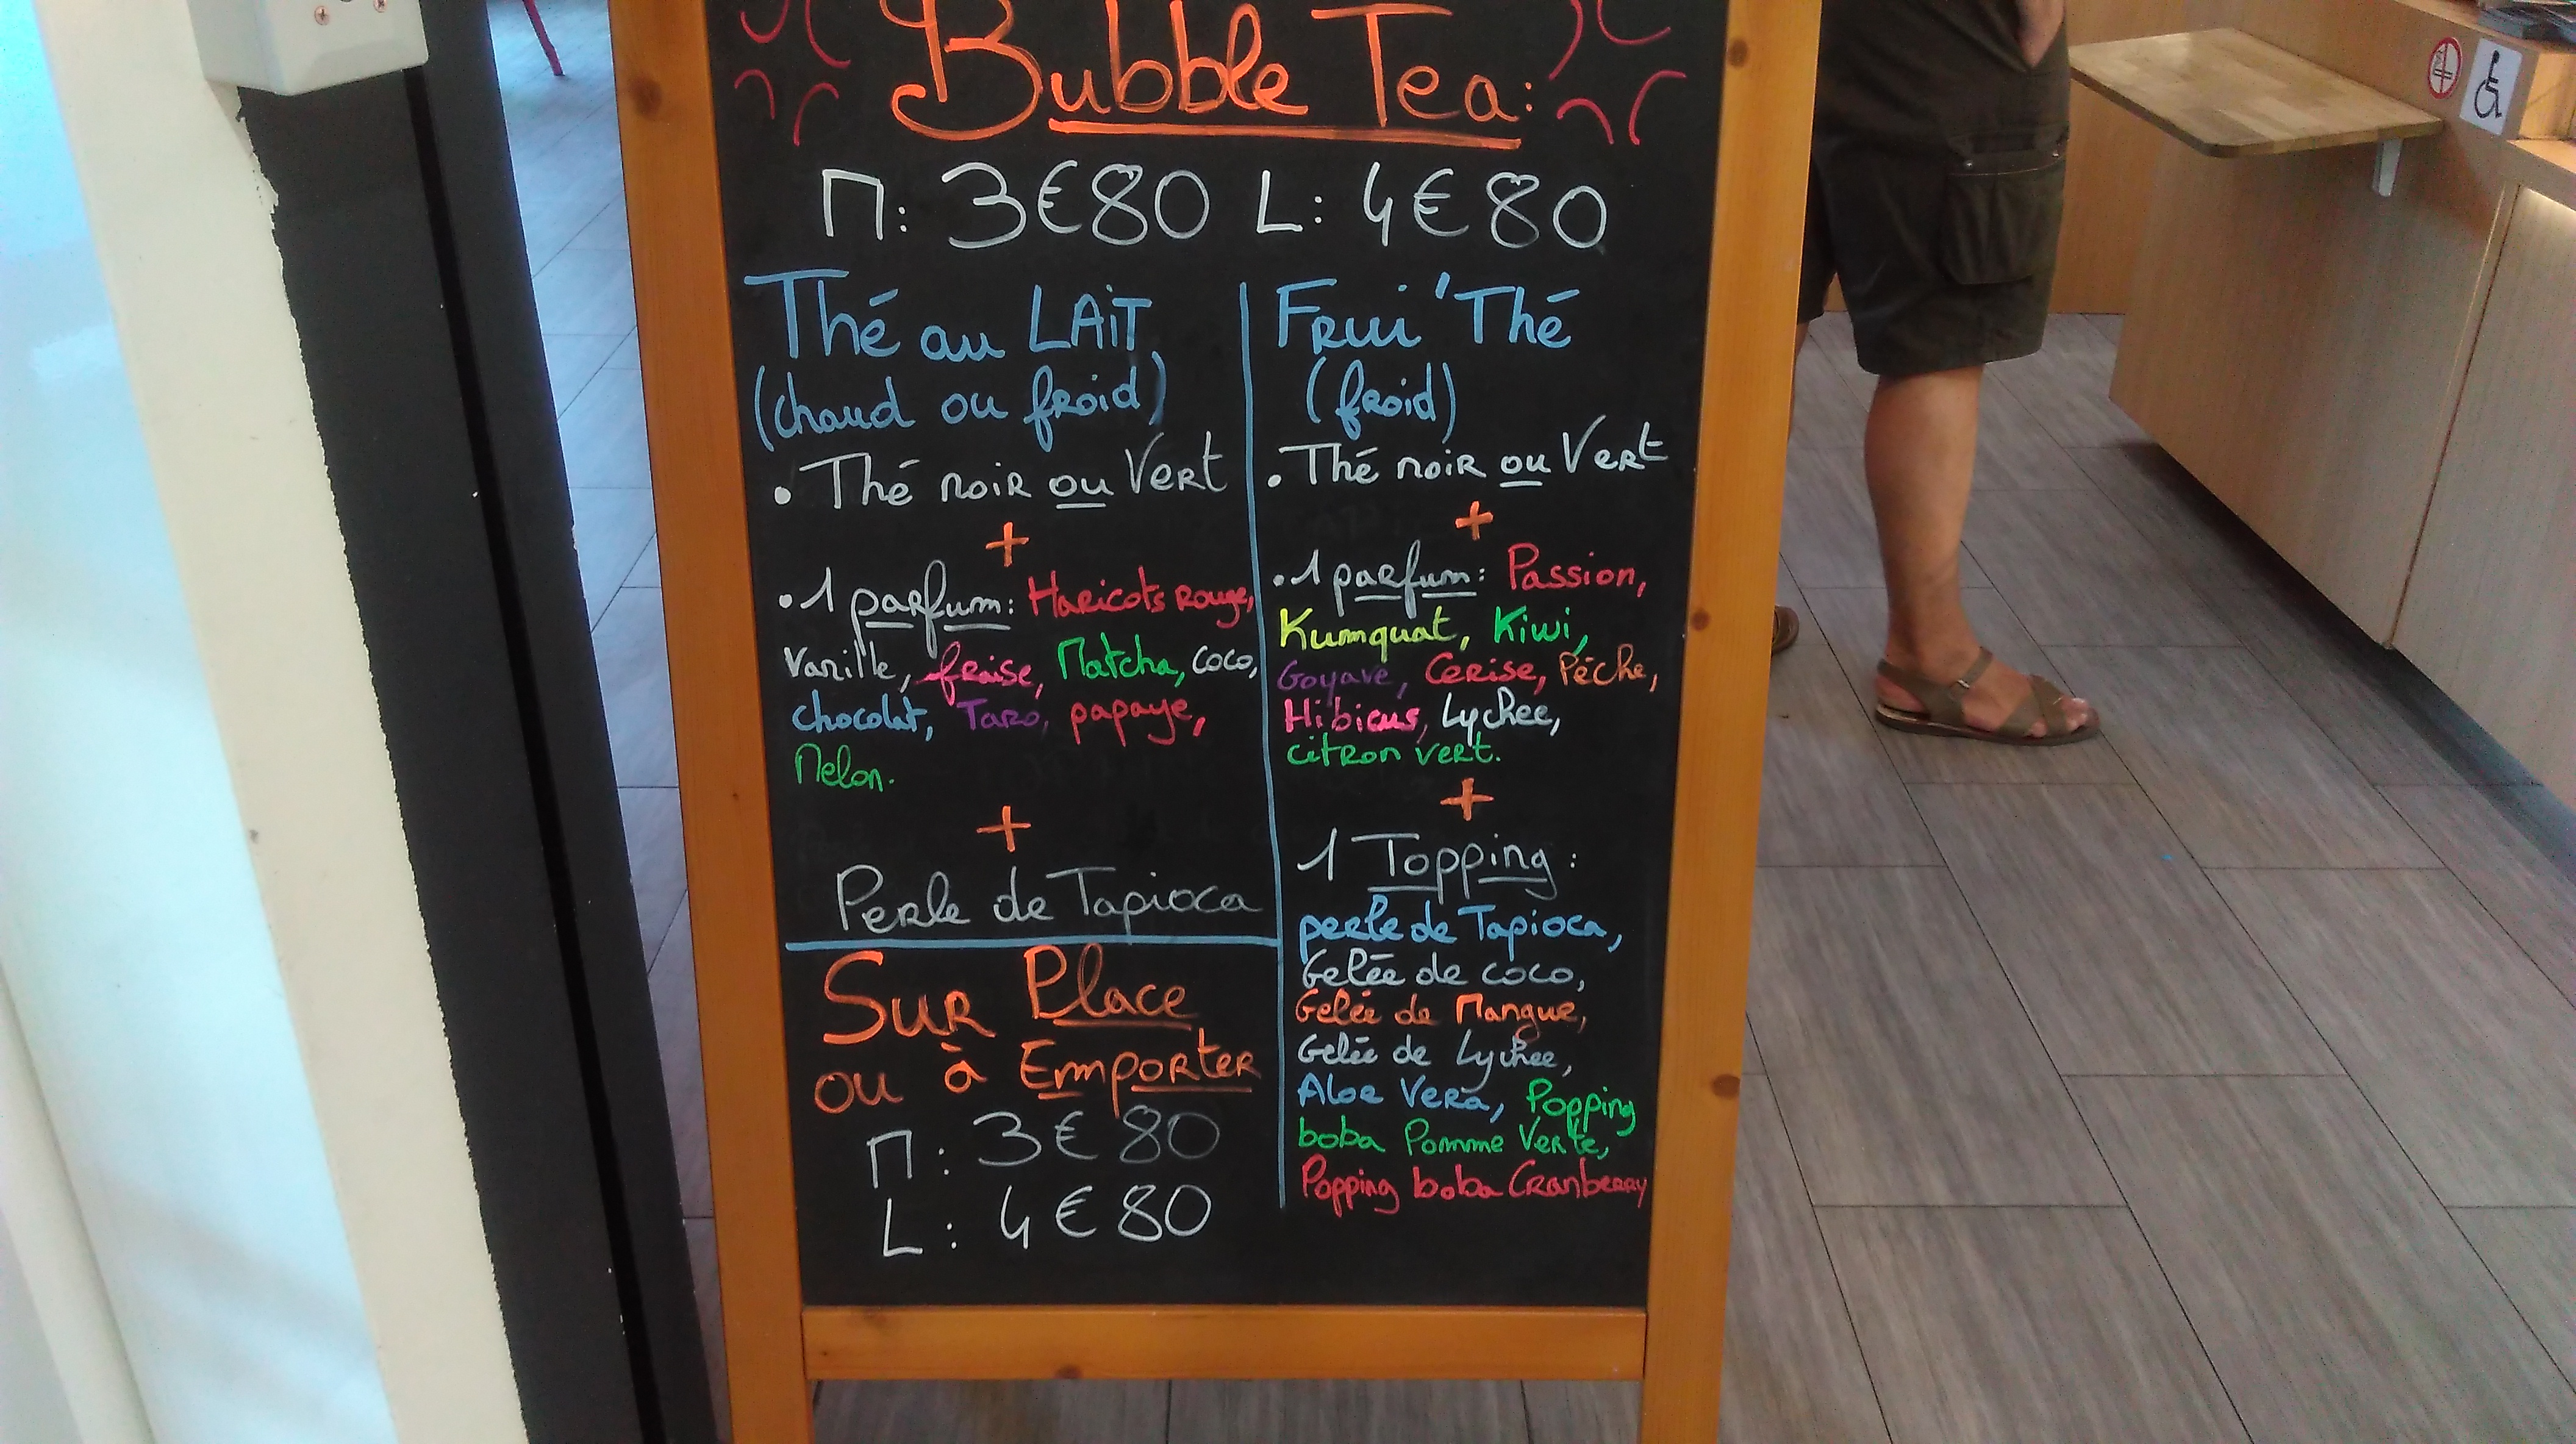 Bubble Tea:
M: 3€80 L: 4€80
Thé au LAIT
(chaud ou froid)
• Thé noir ou Vert
+
• 1 parfum: Haricots rouge,
Vanille, fraise, Matcha, coco,
chocolat, Taro, papaye,
Melon.
+
Perle de Tapioca
Sur Place
ou à Emporter
M: 3€80
L: 4€80
Frui'Thé
(froid)
• Thé noir ou Vert
+
• 1 parfum: Passion,
Kumquat, Kiwi,
Goyave, Cerise, Pêche,
Hibicus, Lychee,
citron vert.
+
1 Topping:
perle de Tapioca,
Gelée de coco,
Gelée de Mangue,
Gelée de Lychee,
Aloe Vera, Popping
boba Pomme Verte,
Popping boba Cranberry